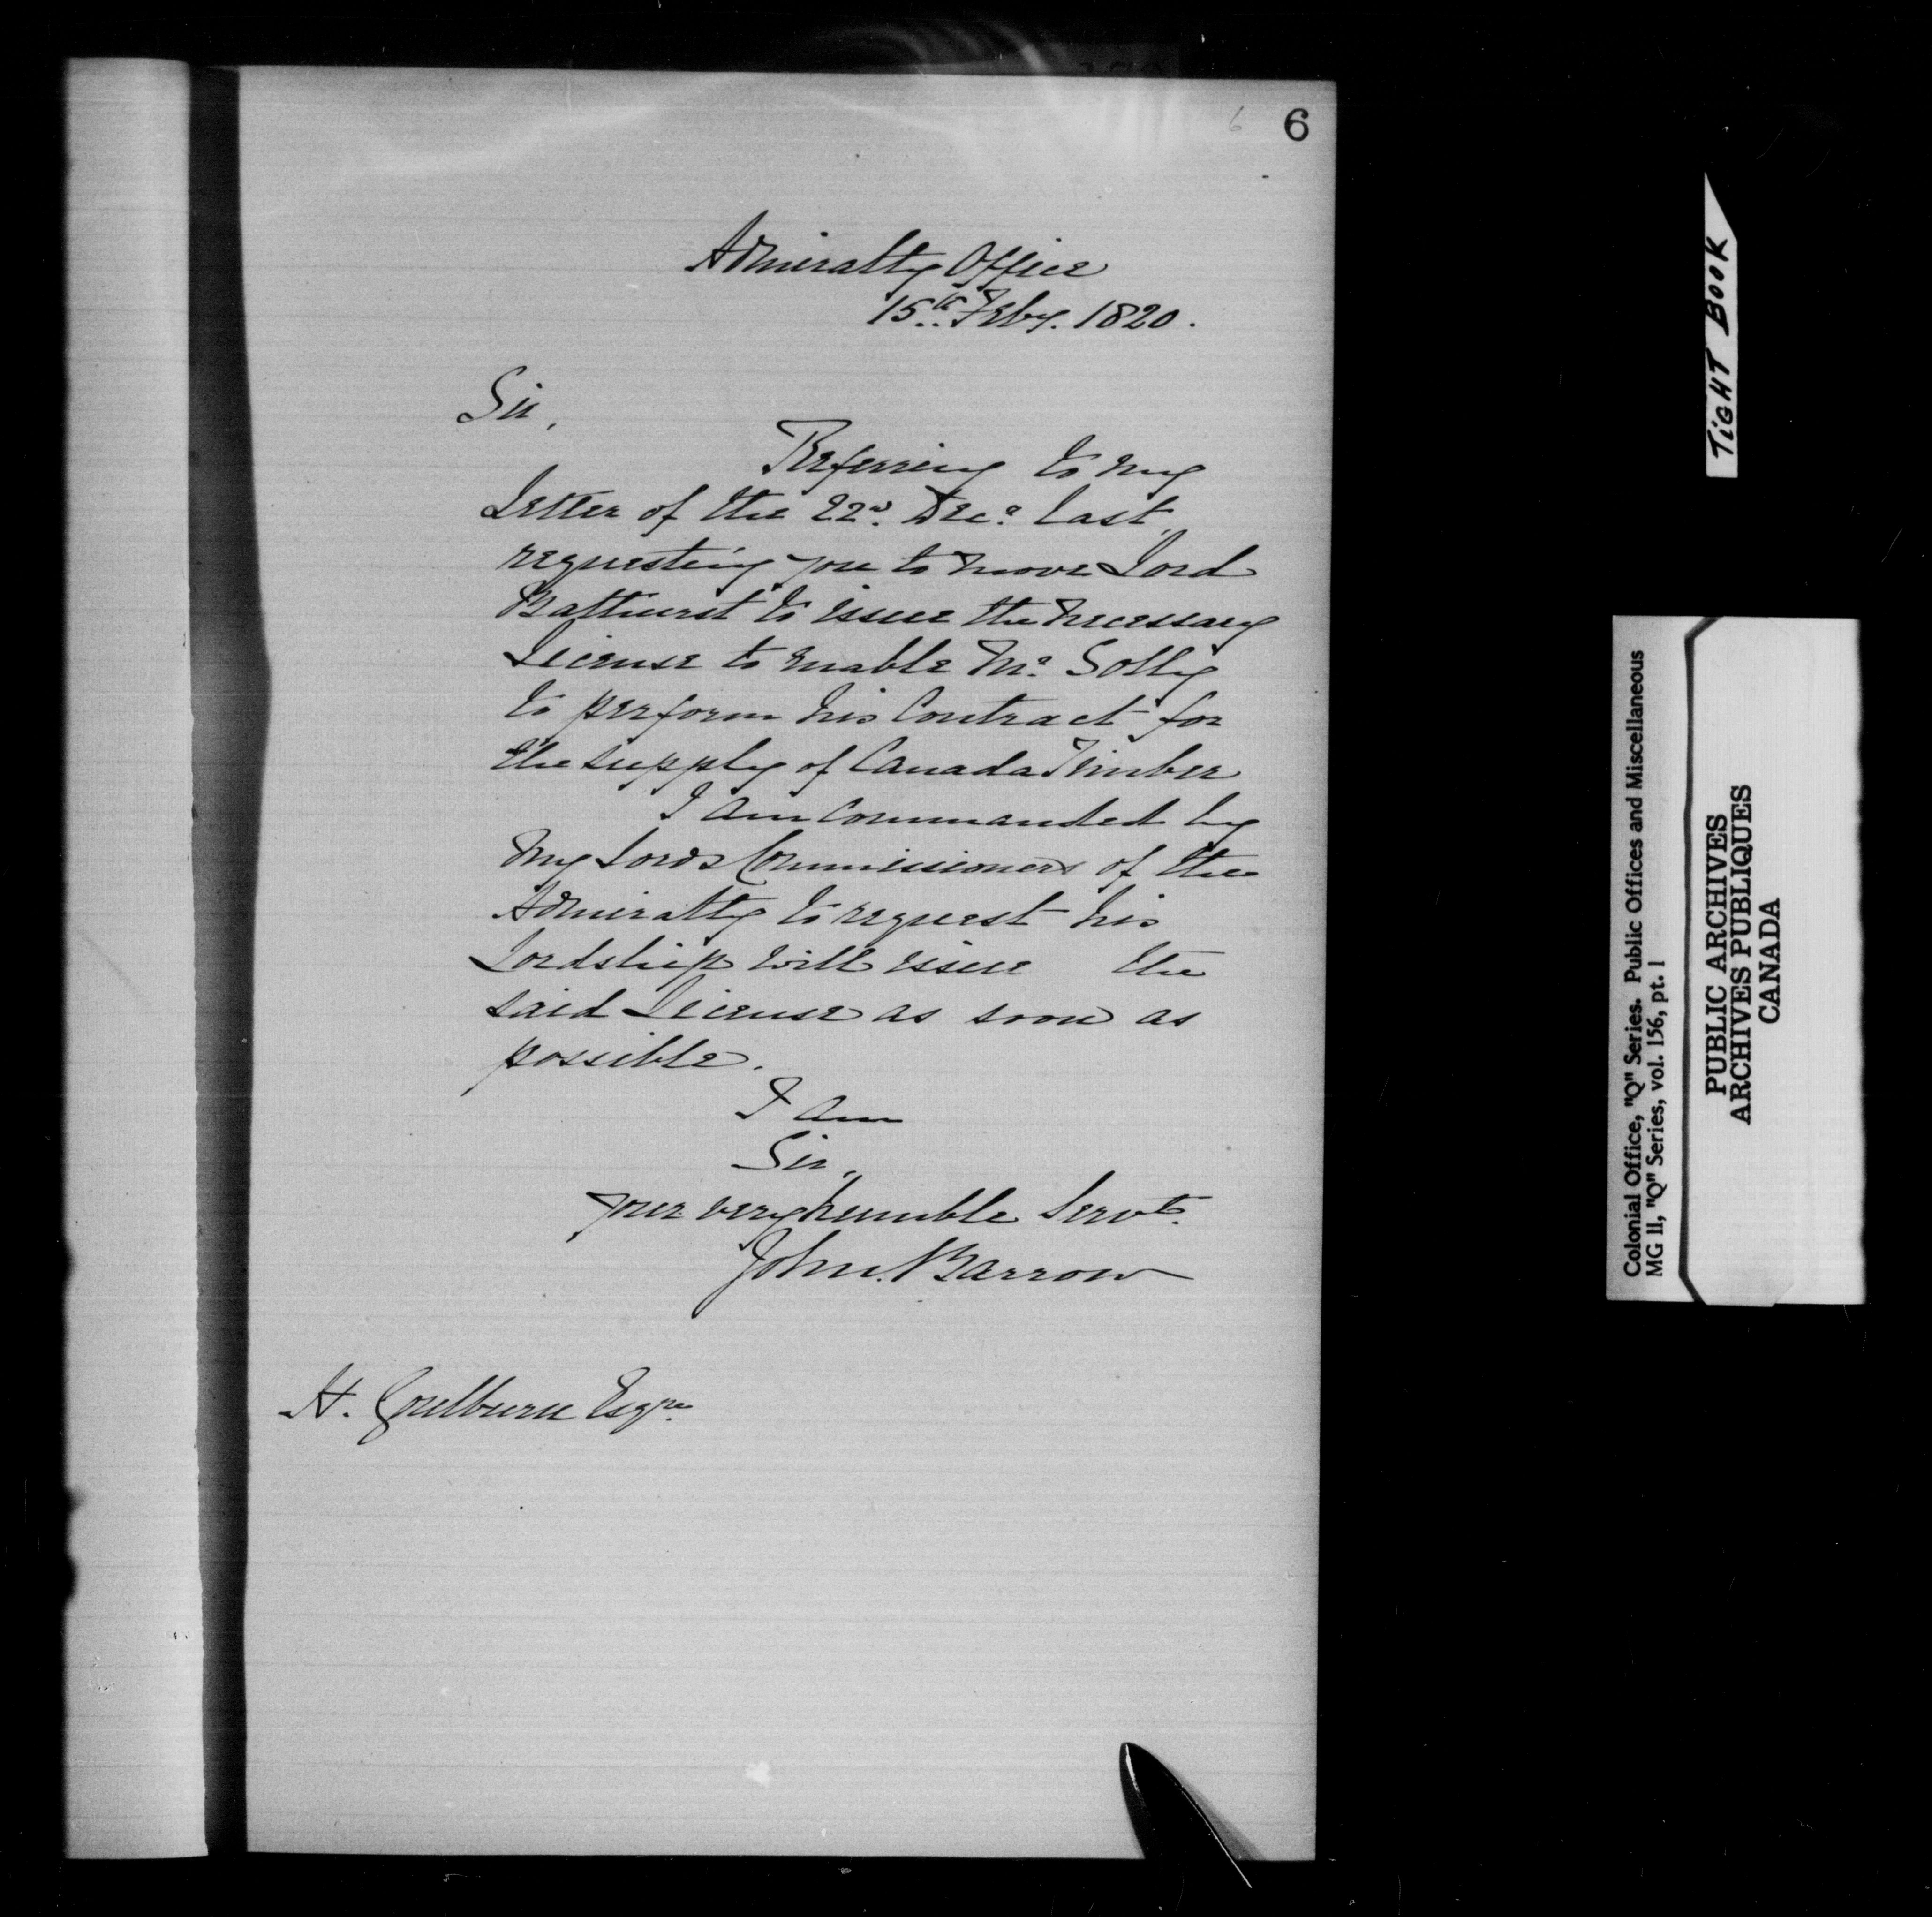 6 6
Admiralty Office
15th Feby. 1820.
Sir,
Referring to my
Letter of the 22d. Decr. last,
requesting you to move Lord
Bathurst to issue the necessary
License to enable Mr. Solly
to perform his Contract for
the supply of Canada Timber
I am commanded by
My Lords Commissioners of the
Admiralty to request his
Lordship will issue the
said License as soon as
possible.
I am
Sir,
Your very humble Servt.
John Barrow
H. Goulburn Esqre.
TiGHT BOOK
Colonial Office, "Q" Series. Public Offices and Miscellaneous
MG 11, "Q" Series, vol. 156, pt. 1
PUBLIC ARCHIVES
ARCHIVES PUBLIQUES
CANADA